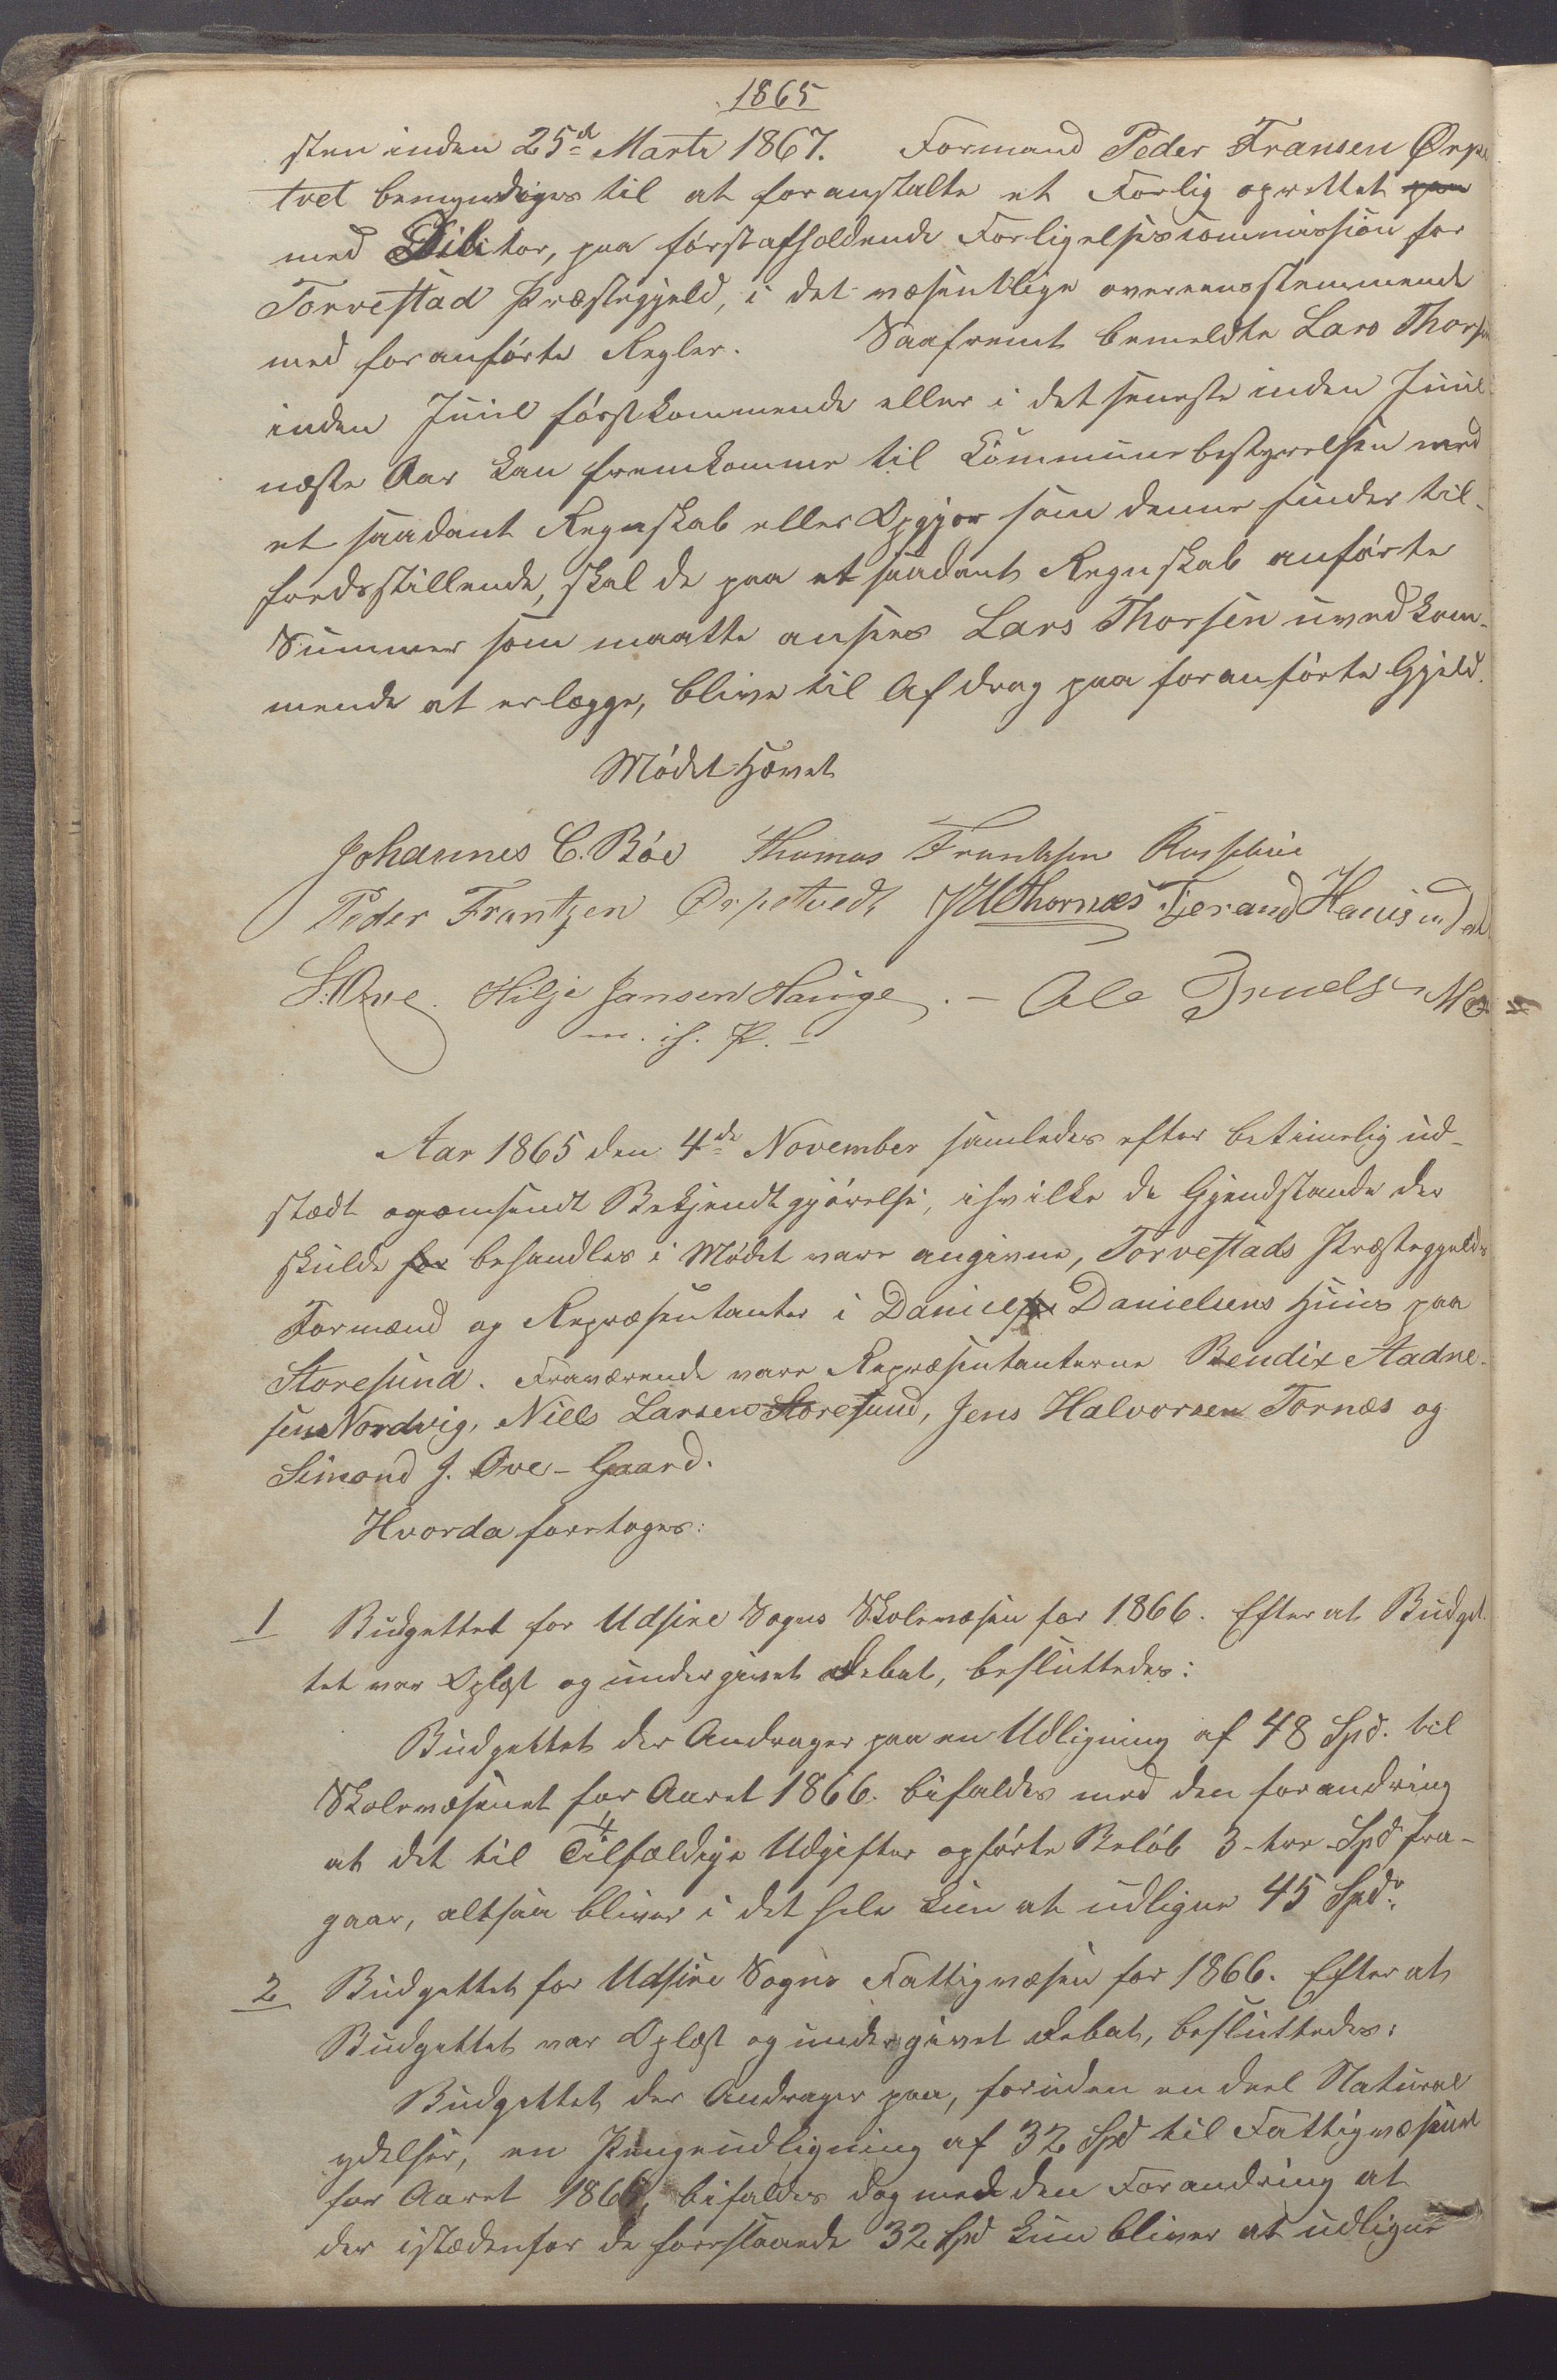 1865
sten inden 25d Marts 1867. Formand Peder Fransen Ørpe
tvet bemyndiges til at foranstalte et Forlig oprettet paa
med Debitor, paa förstafholdende Forligelsescommission for
Torvestad Præstegjeld, i det væsentlige overeensstemmende
med foranförte Regler. Saafremt bemeldte Lars Thorsen
inden Juni förstkommende eller i det seneste inden Juni
næste Aar kan fremkomme til Kommunebestyrelsen med
et saadant Regnskab eller Opgjør som denne finder til-
fredsstillende, skal de paa et saadant Regnskab anförte
Summer som maatte ansees Lars Thorsen uvedkom-
mende at erlægge, blive til Afdrag paa foranförte Gjeld.
Mödet hævet
Johannes C. Böe Thomas Frantzen
Peder Frantzen Ørpetvedt JHThornæs Tjerand
S. Ove. Hilje Jansen Hauge. - Ole
m. i. P.
Aar 1865 den 4de November samledes efter betimelig ud-
stædt og omsendt Bekjendtgjörelse, i hvilke de Gjendstande der
skulde for behandles i Mödet vare angivne, Torvestads Præstegjelds
Formænd og Repræsentanter i Daniel Danielsens Huus paa
Storesund. Fraværende vare Repræsentanterne Bendix Aadne-
sen Nordvig, Niels Larsen Storesund, Jens Halvorsen Tornæs og
Simond J. Ove-Gaard.
Hvorda foretoges:
1 Budgettet for Udsire Sogns Skolevæsen for 1866. Efter at Budget
tet var Oplæst og undergivet debat, besluttedes:
Budgettet der Andrager paa en Udligning af 48 Spd. til
Skolevæsenet for Aaret 1866. bifaldes med den forandring
at det til Tilfældige Udgifter opförte Belöb 3-tre Spd fra-
gaar, altsaa bliver i det hele kun at udligne 45 Spdr.
2 Budgettet for Udsire Sogns Fattigvæsen for 1866. Efter at
Budgettet var Oplæst og undergivet debat, besluttedes:
Budgettet der Andrager paa, foruden en deel Natural
ydelser, en Pengeudligning af 32 Spd til Fattigvæsenet
for Aaret 1866, bifaldes dog med den Forandring at
der istædenfor de foreslaaede 32 Spd kun bliver at udligne